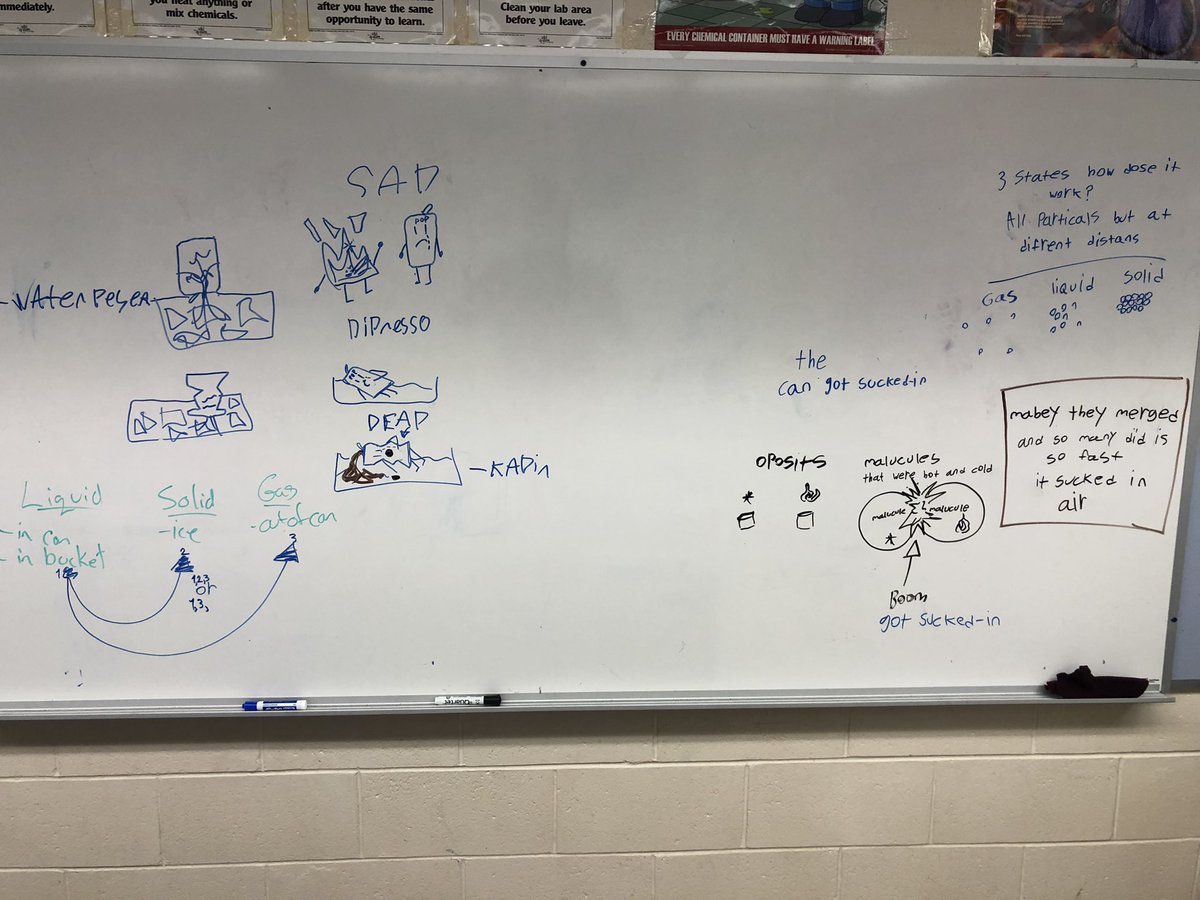 mmediately.
you heat anything or
mix chemicals.
after you have the same
opportunity to learn.
Clean your lab area
before you leave.
EVERY CHEMICAL CONTAINER MUST HAVE A WARNING LABEL
SAD
POP
DiPresso
DEAD
-KADin
Liquid
- in can
- in bucket
Solid
-ice
Gas
1
2
3
1,2,3
or
1,3,
the
can got sucked-in
OPOSITS
malucules
that were hot and cold
malucule
malucule
Boom
got sucked-in
3 States how dose it
work?
All Particals but at
difrent distans
Gas
liquid
Solid
mabey they merged
and so many did is
so fast
it sucked in
air